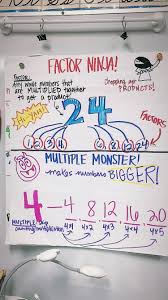 FACTOR NINJA!
FACTORS:
Any whole numbers that
are MULTIPLIED together
to get a product!
Chopping up
PRODUCTS!
HI-YAH!
24
FACTORS
1 2 3 4 6 8 12 24
MULTIPLE MONSTER!
makes numbers BIGGER!
4 - 4 8 12 16 20
4x1 4x2 4x3 4x4 4x5
MULTIPLES: skip
counting/multiplication